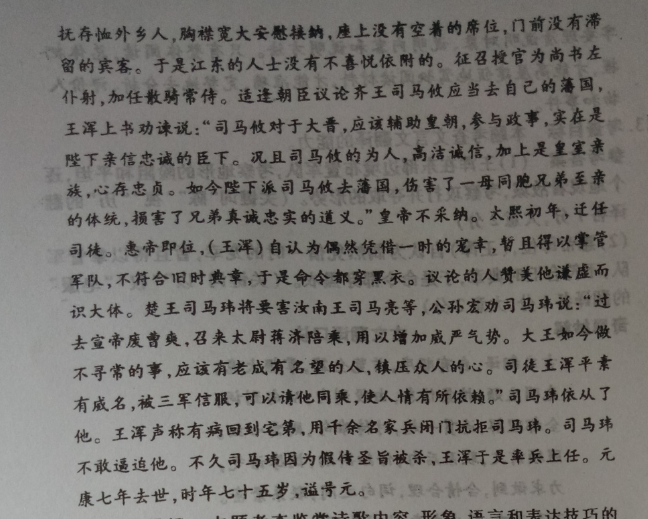 抚存恤外乡人，胸襟宽大安慰接纳，座上没有空着的席位，门前没有滞
留的宾客。于是江东的人士没有不喜悦依附的。征召授官为尚书左
仆射，加任散骑常侍。适逢朝臣议论齐王司马攸应当去自己的藩国，
王浑上书劝谏说：“司马攸对于大晋，应该辅助皇朝，参与政事，实在是
陛下亲信忠诚的臣下。况且司马攸的为人，高洁诚信，加上是皇室亲
族，心存忠贞。如今陛下派司马攸去藩国，伤害了一母同胞兄弟至亲
的体统，损害了兄弟真诚忠实的道义。”皇帝不采纳。太熙初年，迁任
司徒。惠帝即位，（王浑）自认为偶然凭借一时的宠幸，暂且得以掌管
军队，不符合旧时典章，于是命令都穿黑衣。议论的人赞美他谦虚而
识大体。楚王司马玮将要害汝南王司马亮等，公孙宏劝司马玮说：“过
去宣帝废曹爽，召来太尉蒋济陪乘，用以增加威严气势。大王如今做
不寻常的事，应该有老成有名望的人，镇压众人的心。司徒王浑平素
有威名，被三军信服，可以请他同乘，使人情有所依赖。”司马玮依从了
他。王浑声称有病回到宅第，用千余名家兵闭门抗拒司马玮。司马玮
不敢逼迫他。不久司马玮因为假传圣旨被杀，王浑于是率兵上任。元
康七年去世，时年七十五岁，谥号元。
本题考查鉴赏诗歌内容、形象、语言和表达技巧的